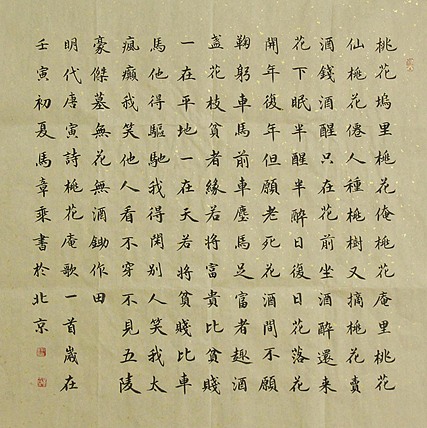 桃花塢里桃花俺桃花庵里桃花
仙桃花僊人種桃樹又摘桃花賣
酒錢酒醒只在花前坐酒醉還来
花下眠半醒半醉日後日花落花
開年後年但願老死花酒間不願
鞠躬車馬前車塵馬足富者趣酒
盞花枝貧者緣若將富貴比貧賤
一在平地一在天若將貧賤比車
馬他得驅馳我得閑別人笑我太
瘋癲我笑他人看不穿不見五陵
豪傑墓無花無酒鋤作田
明代唐寅詩桃花庵歌一首歲在
壬寅初夏馬章乘書於北京